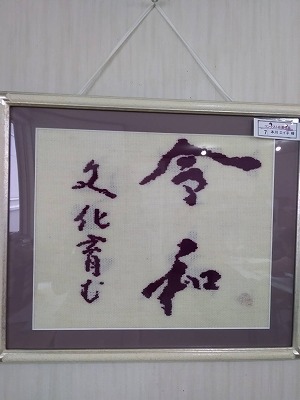 令和
文化育む